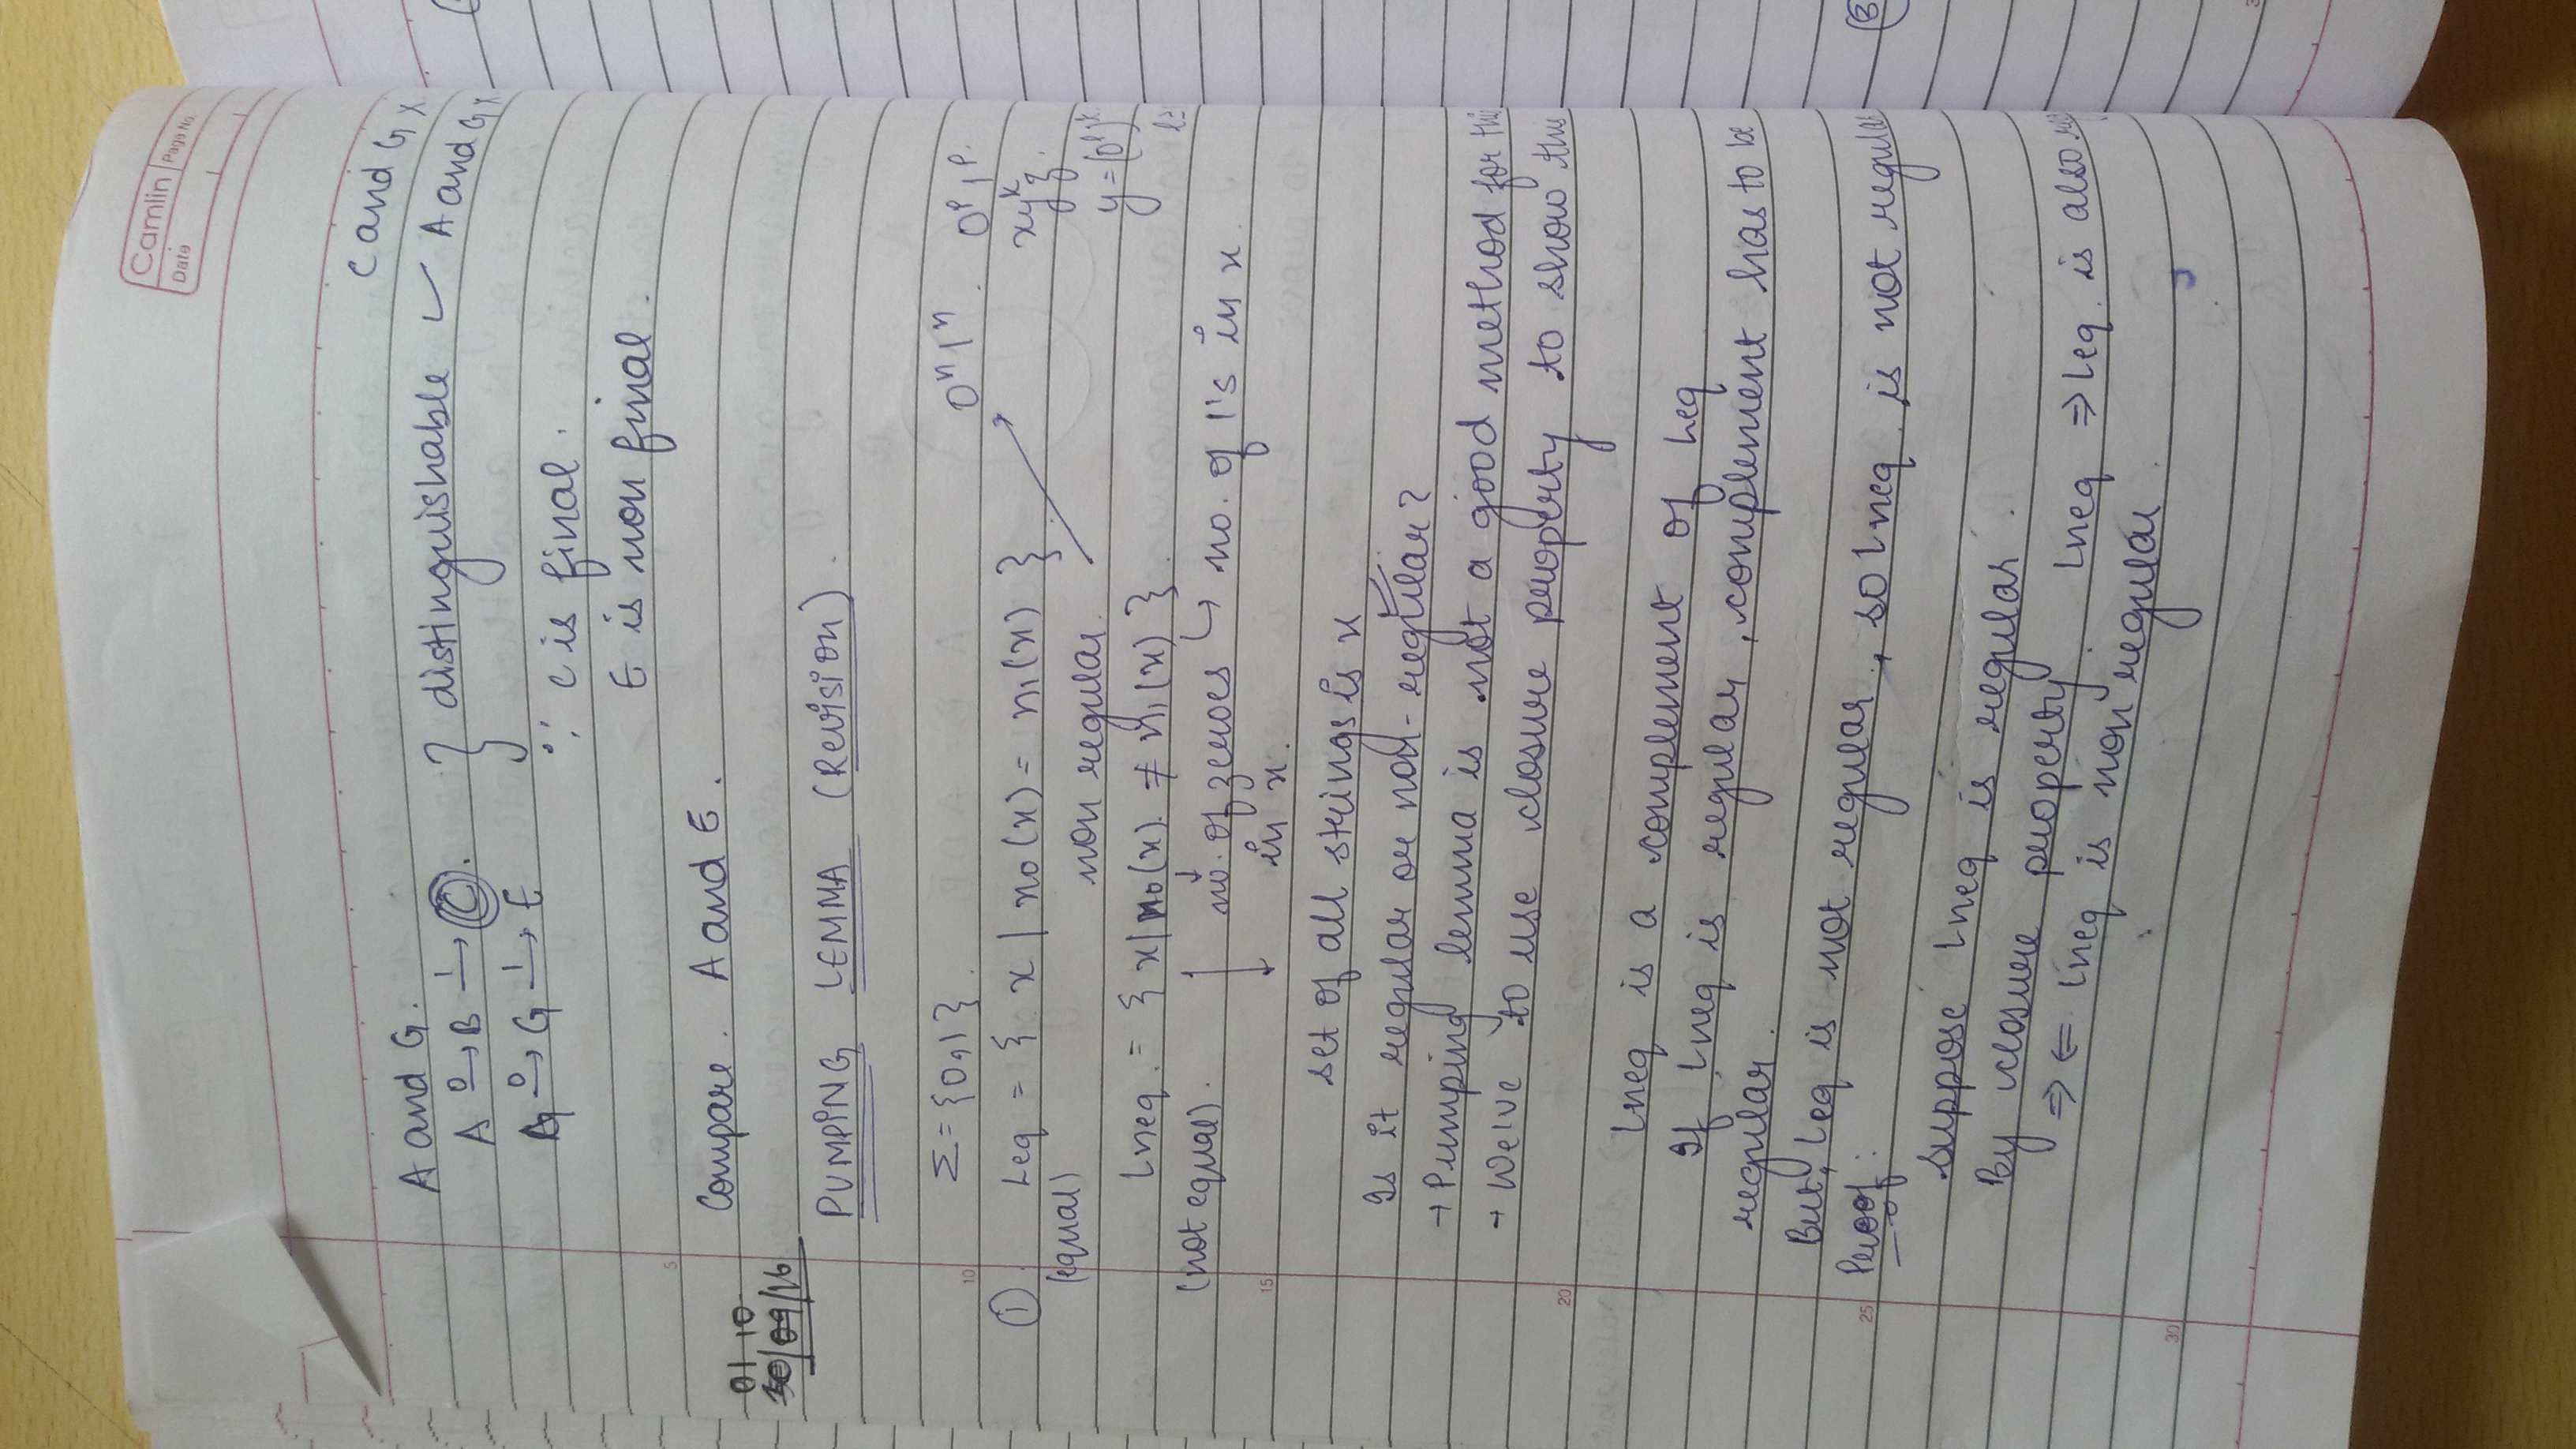 Camlin
Page No.
Date
C and G x
A and G.
A 0→ B 1→ C. } distinguishable ✓ A and G x
G 0→ G 1→ E
∵ C is final.
E is non final.
5
Compare. A and E.
01 10
30/09/16
PUMPING LEMMA (Revision).
Σ = {0,1}.
0ⁿ1ⁿ. 0ᵖ1ᵖ.
10
① Leq = { x | n₀(x) = n₁(x) }.
xyᵏz.
(equal)
non regular.
y = (0ˡ)ᵏ.
Lneq. = { x | n₀(x). ≠ n₁(x) }.
l≥
(not equal).
↓ no. of zeroes ↳ no. of 1's in x.
15
in x.
set of all strings is x
Is it regular or non-regular?
→ Pumping lemma is not a good method for
→ We've to use closure property to show this
20
Lneq is a complement of Leq
If Lneq is regular, complement has to be
regular.
But, Leq is not regular, so Lneq. is not regular
25
Proof:
Suppose Lneq is regular.
By closure property. Lneq ⇒ Leq. is also
⇒⇐ Lneq is non regular.
30